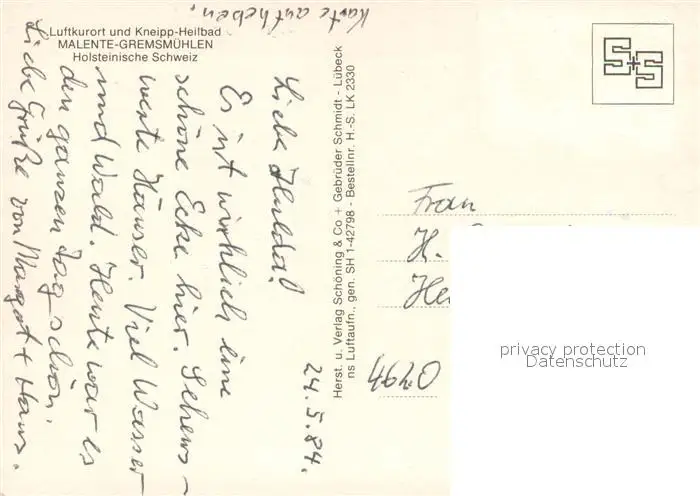 Karte aufheben,
Luftkurort und Kneipp-Heilbad
MALENTE-GREMSMÜHLEN
Holsteinische Schweiz
24.5.84.
Liebe Hulda!
Es ist wirklich eine
schöne Ecke hier. Sehens-
werte Häuser. Viel Wasser
und Wald. Heute war es
den ganzen Tag schön.
Liebe Grüße von Margot + Hans.
Herst. u. Verlag Schöning & Co + Gebrüder Schmidt - Lübeck
ns Luftaufn., gen. SH 1-42798 - Bestellnr. H.-S. LK 2330
S+S
Frau
H.
He
4620
privacy protection
Datenschutz